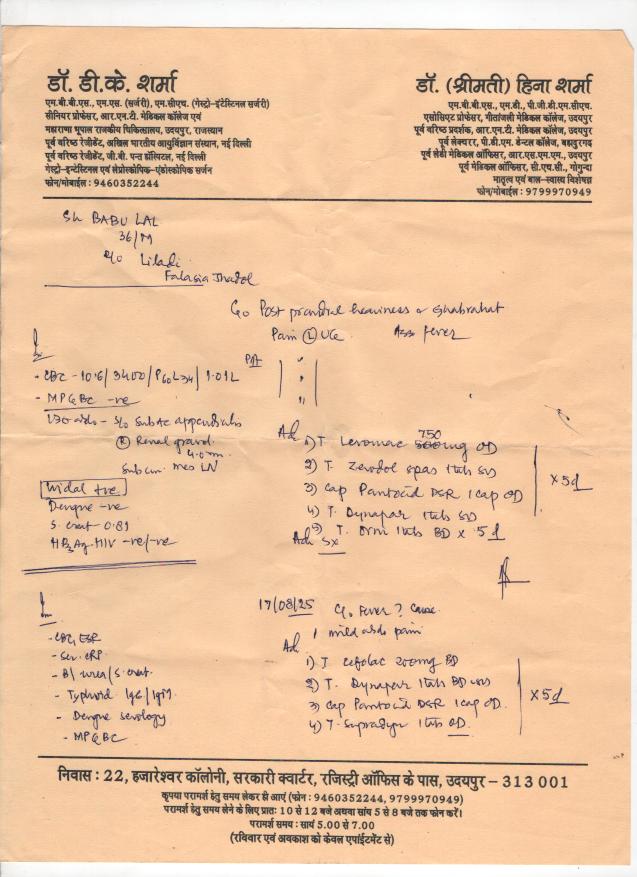 डॉ. डी.के. शर्मा
एम.बी.बी.एस., एम.एस. (सर्जरी), एम.सीएच. (गेस्ट्रो-इंटेस्टिनल सर्जरी)
सीनियर प्रोफेसर, आर.एन.टी. मेडिकल कॉलेज एवं
महाराणा भूपाल राजकीय चिकित्सालय, उदयपुर, राजस्थान
पूर्व वरिष्ठ रेजीडेंट, अखिल भारतीय आयुर्विज्ञान संस्थान, नई दिल्ली
पूर्व वरिष्ठ रेजीडेंट, जी.बी. पन्त हॉस्पिटल, नई दिल्ली
गेस्ट्रो-इन्टेस्टिनल एवं लेप्रोस्कोपिक-एंडोस्कोपिक सर्जन
फोन/मोबाईल : 9460352244
डॉ. (श्रीमती) हिना शर्मा
एम.बी.बी.एस., एम.डी., पी.जी.डी.एम.सीएच.
एसोसिएट प्रोफेसर, गीतांजली मेडिकल कॉलेज, उदयपुर
पूर्व वरिष्ठ प्रदर्शक, आर.एन.टी. मेडिकल कॉलेज, उदयपुर
पूर्व लेक्चरर, पी.डी.एम. डेन्टल कॉलेज, बहादुरगढ़
पूर्व लेडी मेडिकल ऑफिसर, आर.एस.एम.एम., उदयपुर
पूर्व मेडिकल ऑफिसर, सी.एच.सी., गोगुन्दा
मातृत्व एवं बाल-स्वास्थ्य विशेषज्ञ
फोन/मोबाईल : 9799970949
Sh BABU LAL
36/M
Falasia Jhadol
C/o Post prandial heaviness & Ghabrahat
Pain (L) UG Ass fever
P/A
- CBC - 10.6/3400/P60L34/1.01L
- MP QBC -ve
USG abdo - S/o SubAc appendicitis
(R) Renal gravel
4.0mm
Subcm. mes LN
Widal +ve
Dengue -ve
S. creat 0.89
HBsAg, HIV -ve/-ve
Ad
1) T. Levomac 750 mg OD
2) T. Zerodol spas 1tab SOS
3) Cap Pantocid DSR 1 cap OD
4) T. Dynapar 1tab SOS
x 5d
5) T. Orni 1tab BD x 5d
Ad Sx
17/08/25 C/o Fever ? Cause
mild abdo pain
- CBC, ESR
- Ser. CRP
- B/ urea/S. creat.
- Typhoid IgG/IgM
- Dengue serology
- MP QBC
Ad
1) T. Cefolac 200mg BD
2) T. Dynapar 1tab BD SOS
3) Cap Pantocid DSR 1 cap OD.
4) T. Supradyn 1tab OD.
x 5d
निवास : 22, हजारेश्वर कॉलोनी, सरकारी क्वार्टर, रजिस्ट्री ऑफिस के पास, उदयपुर – 313 001
कृपया परामर्श हेतु समय लेकर ही आएं (फोन : 9460352244, 9799970949)
परामर्श हेतु समय लेने के लिए प्रातः 10 से 12 बजे अथवा सांय 5 से 8 बजे तक फोन करें।
परामर्श समय : सायं 5.00 से 7.00
(रविवार एवं अवकाश को केवल एपॉईंटमेंट से)